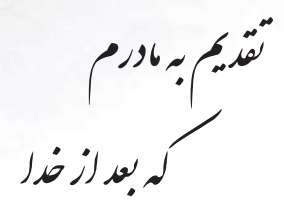 تقدیم به مادرم
که بعد از خدا